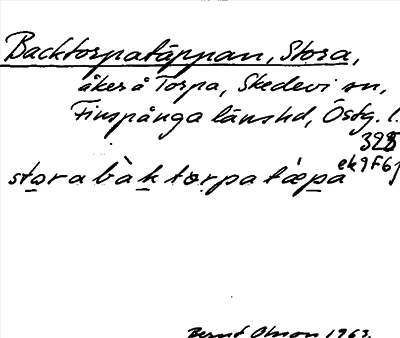 Backtorpatäppan, Stora,
åker å Torpa, Skedevi sn,
Finspånga länshd, Östg. l.
325
ek 9F6j
storabàktorpatǽpa
Bernt Olsson 1963.